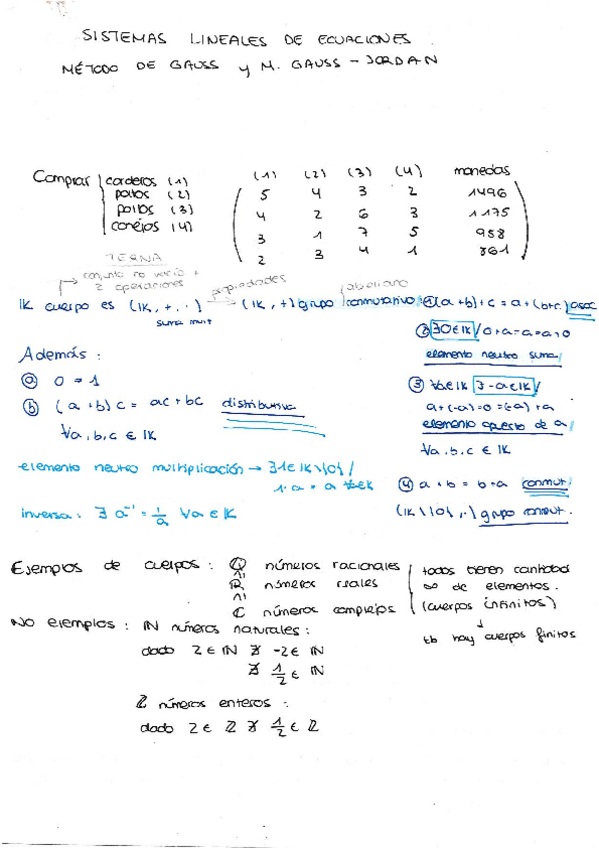 SISTEMAS LINEALES DE ECUACIONES.
MÉTODO DE GAUSS y M. GAUSS - JORDAN
Comprar corderos (1)
pavos (2)
pollos (3)
conejos (4)
(1) (2) (3) (4) monedas
5 4 3 2 1496
4 2 6 3 1175
3 1 7 5 958
2 3 4 1 861
TERNA
conjunto no vacío +
2 operaciones
propiedades
abeliano
IK cuerpo es (IK, +, ·) → (IK, +) grupo conmutativo
suma mult
① (a+b)+c = a+(b+c) asoc
② ∃0∈IK / 0+a=a=a+0
elemento neutro suma
③ ∀a∈IK ∃-a∈IK /
a+(-a)=0=(-a)+a
elemento opuesto de a
∀a,b,c ∈ IK
④ a+b = b+a conmut
(IK\{0}, ·) grupo conmut.
Además:
ⓐ 0 = 1
ⓑ (a+b)c = ac+bc distributiva
∀a,b,c ∈ IK
elemento neutro multiplicación → ∃1∈IK\{0}/
1·a = a ∀a∈K
inversa: ∃ a⁻¹ = 1/a ∀a∈IK
Ejemplos de cuerpos: Q números racionales
R números reales
C números complejos
todos tienen cantidad
∞ de elementos.
(cuerpos infinitos)
↓
tb hay cuerpos finitos
No ejemplos: IN números naturales:
dado 2∈IN ∄ -2∈IN
∄ 1/2 ∈ IN
ℤ números enteros:
dado 2∈ℤ ∄ 1/2 ∈ ℤ